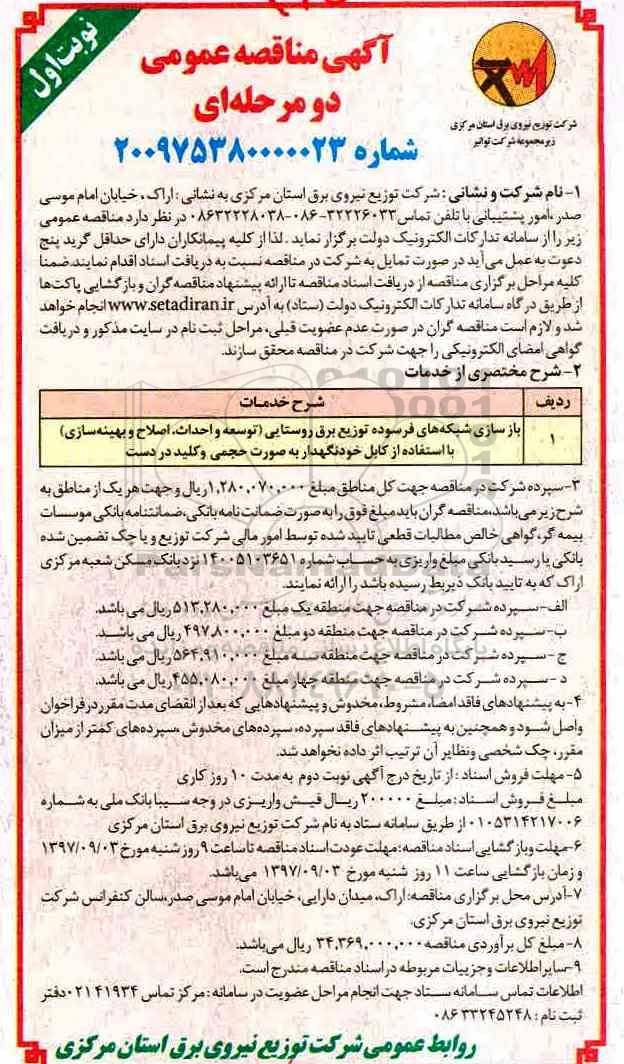 نوبت اول
آگهی مناقصه عمومی
دو مرحله‌ای
شماره ۲۰۰۹۷۵۳۸۰۰۰۰۰۲۳
شرکت توزیع نیروی برق استان مرکزی
زیر مجموعه شرکت توانیر
۱- نام شرکت و نشانی : شرکت توزیع نیروی برق استان مرکزی به نشانی : اراک ، خیابان امام موسی
صدر ،امور پشتیبانی با تلفن تماس ۳۲۲۲۶۰۳۳-۰۸۶-۰۸۶۳۲۲۲۸۰۳۸ در نظر دارد مناقصه عمومی
زیر را از سامانه تدارکات الکترونیک دولت برگزار نماید . لذا از کلیه پیمانکاران دارای حداقل گرید پنج
دعوت به عمل می آید در صورت تمایل به شرکت در مناقصه نسبت به دریافت اسناد اقدام نمایند.ضمنا
کلیه مراحل برگزاری مناقصه از دریافت اسناد مناقصه تا ارائه پیشنهاد مناقصه گران و بازگشایی پاکت‌ها
از طریق درگاه سامانه تدارکات الکترونیک دولت (ستاد) به آدرس www.setadiran.ir انجام خواهد
شد و لازم است مناقصه گران در صورت عدم عضویت قبلی، مراحل ثبت نام در سایت مذکور و دریافت
گواهی امضای الکترونیکی را جهت شرکت در مناقصه محقق سازند.
۲- شرح مختصری از خدمات
ردیف شرح خدمات
۱ باز سازی شبکه‌های فرسوده توزیع برق روستایی (توسعه و احداث، اصلاح و بهینه‌سازی)
با استفاده از کابل خودنگهدار به صورت حجمی وکلید در دست
۳-سپرده شرکت در مناقصه جهت کل مناطق مبلغ ۱,۲۸۰,۰۷۰,۰۰۰ریال و جهت هر یک از مناطق به
شرح زیر می‌باشد،مناقصه گران باید مبلغ فوق را به صورت ضمانت نامه بانکی،ضمانتنامه بانکی موسسات
بیمه گر،گواهی خالص مطالبات قطعی تایید شده توسط امور مالی شرکت توزیع و یا چک تضمین شده
بانکی یا رسید بانکی مبلغ واریزی به حساب شماره ۱۴۰۰۵۱۰۳۶۵۱ نزد بانک مسکن شعبه مرکزی
اراک که به تایید بانک ذیربط رسیده باشد را ارائه نمایند.
الف-سپرده شرکت در مناقصه جهت منطقه یک مبلغ ۵۱۳,۲۸۰,۰۰۰ ریال می باشد.
ب-سپرده شرکت در مناقصه جهت منطقه دو مبلغ ۴۹۷,۸۰۰,۰۰۰ ریال می باشد.
ج -سپرده شرکت در مناقصه جهت منطقه سه مبلغ ۵۶۴,۹۱۰,۰۰۰ ریال می باشد.
د -سپرده شرکت در مناقصه جهت منطقه چهار مبلغ ۴۵۵,۰۸۰,۰۰۰ریال می باشد.
۴- به پیشنهادهای فاقد امضا، مشروط، مخدوش و پیشنهادهایی که بعد از انقضای مدت مقرر در فراخوان
واصل شود و همچنین به پیشنهادهای فاقد سپرده، سپرده‌های مخدوش ،سپرده‌های کمتر از میزان
مقرر، چک شخصی ونظایر آن ترتیب اثر داده نخواهد شد.
۵- مهلت فروش اسناد : از تاریخ درج آگهی نوبت دوم به مدت ۱۰ روز کاری
مبلغ فروش اسناد : مبلغ ۲۰۰۰۰۰ ریال فیش واریزی در وجه سیبا بانک ملی به شماره
۰۱۰۵۳۱۴۲۱۷۰۰۶ از طریق سامانه ستاد به نام شرکت توزیع نیروی برق استان مرکزی
۶-مهلت وبازگشایی اسناد مناقصه:مهلت عودت اسناد مناقصه تا ساعت ۹ روز شنبه مورخ ۱۳۹۷/۰۹/۰۳
و زمان بازگشایی ساعت ۱۱ روز شنبه مورخ ۱۳۹۷/۰۹/۰۳ می‌باشد.
۷-آدرس محل برگزاری مناقصه: اراک، میدان دارایی، خیابان امام موسی صدر،سالن کنفرانس شرکت
توزیع نیروی برق استان مرکزی.
۸- مبلغ کل برآوردی مناقصه ۳۴,۳۶۹,۰۰۰,۰۰۰ ریال می‌باشد.
۹-سایر اطلاعات و جزییات مربوطه در اسناد مناقصه مندرج است.
اطلاعات تماس سامانه ستاد جهت انجام مراحل عضویت در سامانه : مرکز تماس ۰۲۱۴۱۹۳۴دفتر
ثبت نام : ۰۸۶۳۳۲۴۵۲۴۸
روابط عمومی شرکت توزیع نیروی برق استان مرکزی